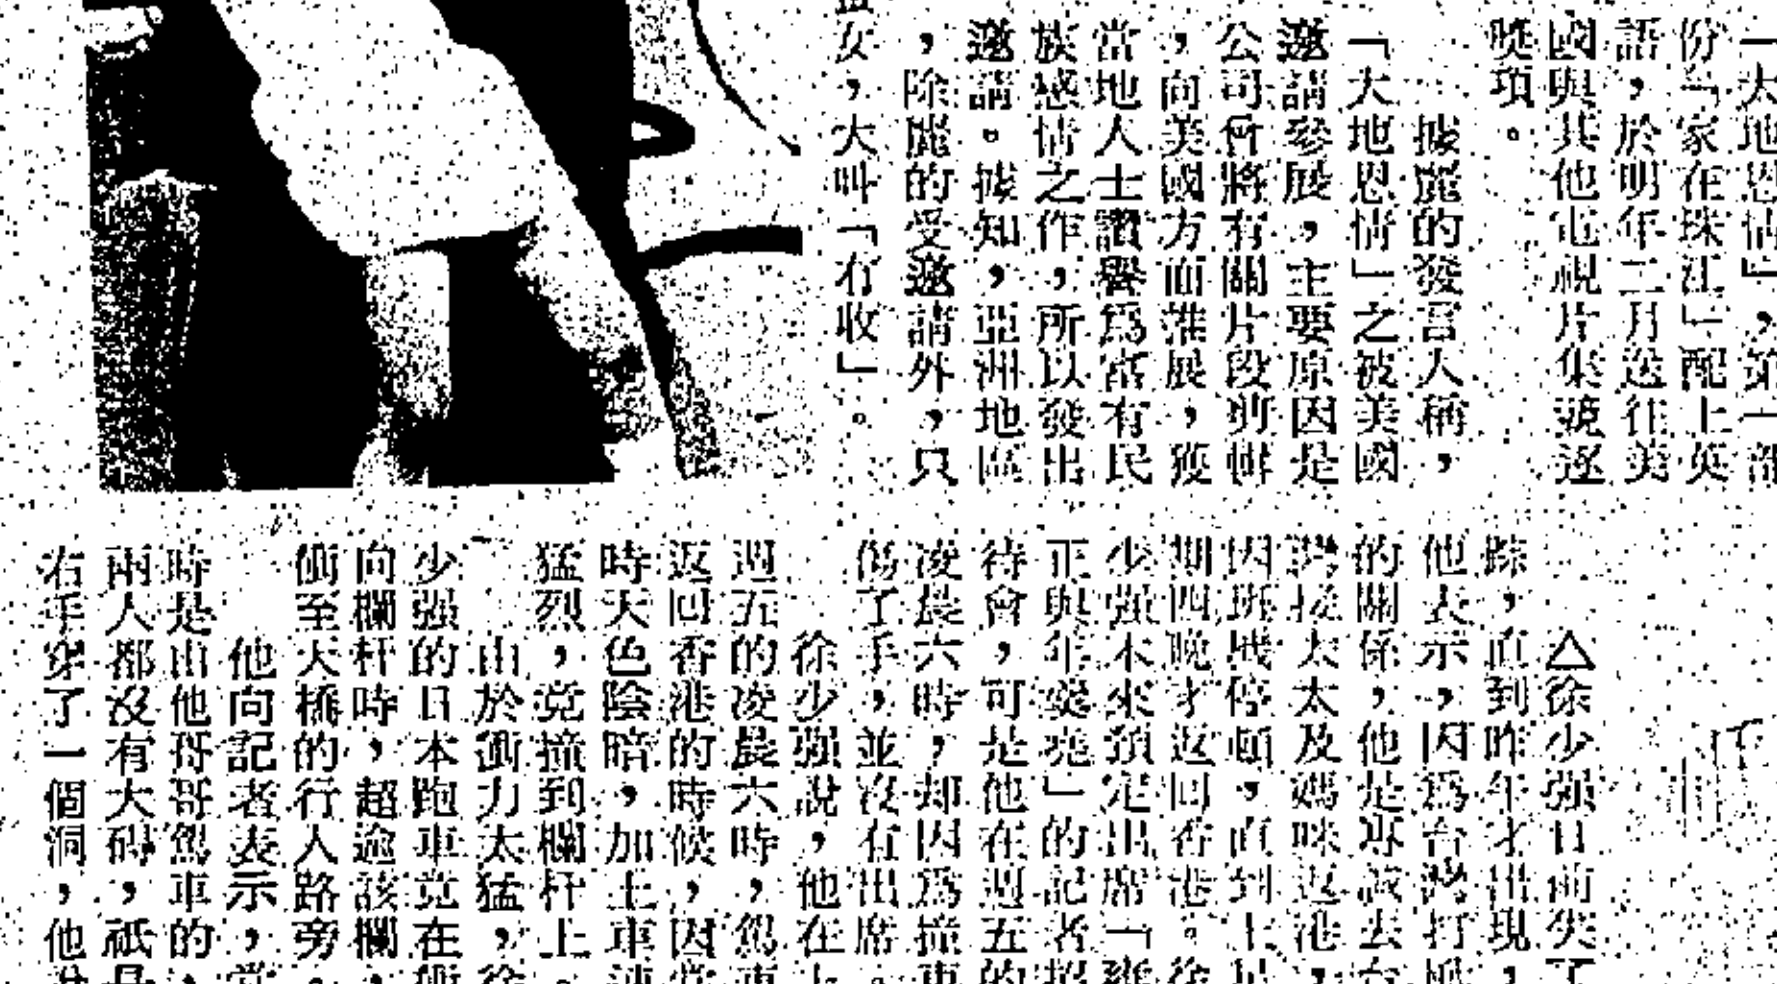 「大地恩情」，第一部
份「家在珠江」配上英
語，於明年二月送往美
國與其他電視片集競逐
獎項。
據麗的發言人稱，
「大地恩情」之被美國
邀請參展，主要原因是
公司曾將有關片段剪輯
，向美國方面推展，獲
當地人士讚譽爲富有民
族感情之作，所以發出
邀請。據知，亞洲地區
，除麗的受邀請外，只
女，大叫「有收」。
△徐少强日前失了
踪，直到昨年才出現，
他表示，因爲台灣打風
的關係，他是專誠去台
灣接太太及媽咪返港，
因班機停頓，直到上星
期四晚才返回香港。徐
少强本來預定出席「雍
正與年羹堯」的記者招
待會，可是他在週五的
凌晨六時，却因爲撞車
傷了手，並沒有出席。
徐少强說，他在上
週五的凌晨六時，駕車
返回香港的時候，因當
時天色陰暗，加上車速
猛烈，竟撞到欄杆上。
由於衝力太猛，徐
少强的日本跑車竟在衝
向欄杆時，超逾該欄，
衝至天橋的行人路旁。
他向記者表示，當
時是由他哥哥駕車的，
兩人都沒有大碍，祇是
右手穿了一個洞，他